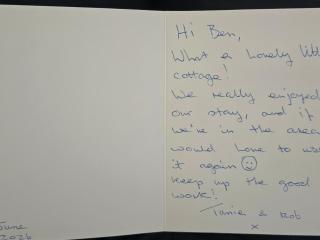 Hi Ben,
What a lovely little
cottage!
We really enjoyed
our stay, and if
we're in the area
would love to use
it again ☺
keep up the good
work!
Tanie & Rob
x
June
2026